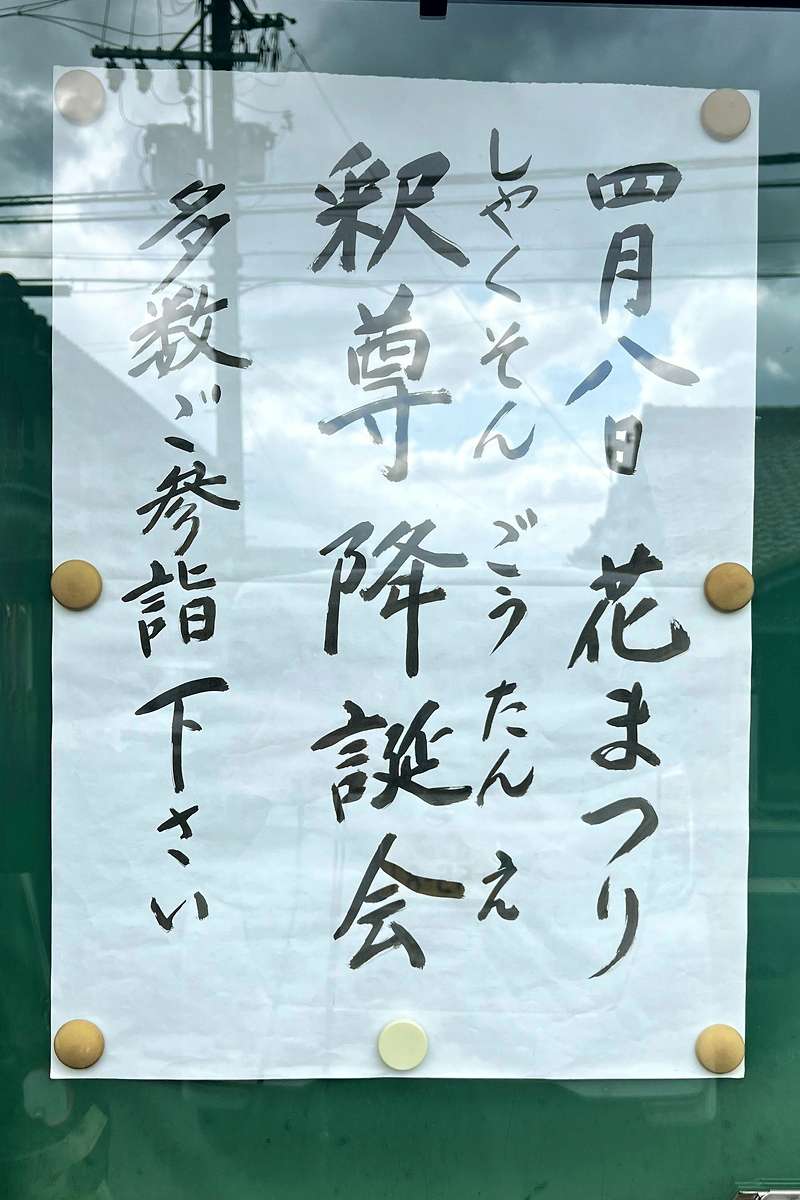 四月八日 花まつり
しゃくそん ごうたん え
釈尊降誕会
多数ご参詣下さい